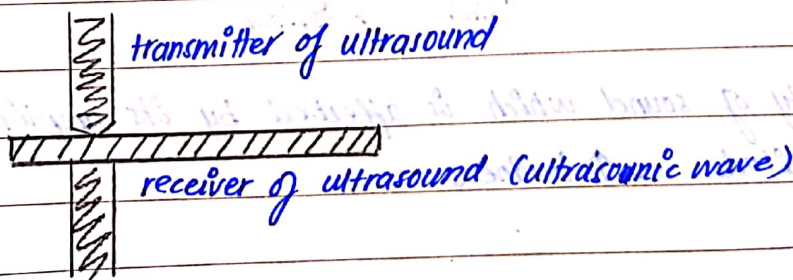 transmitter of ultrasound
receiver of ultrasound (ultrasounnic wave)